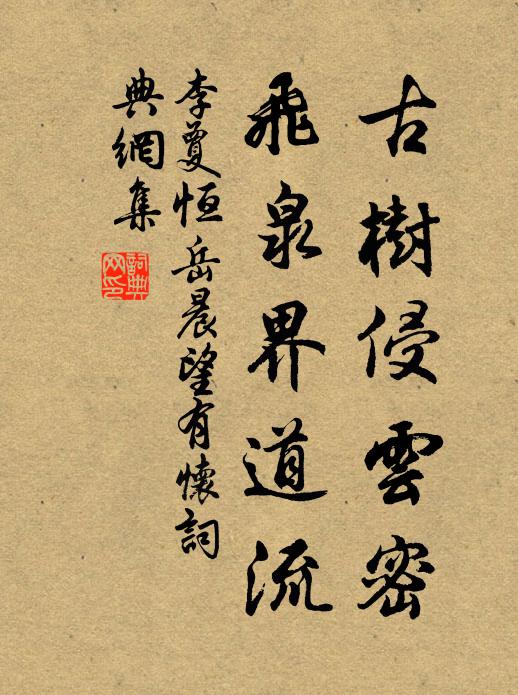 古樹侵雲密
飛泉界道流
李夐恒岳晨望有懷詞
典網集
詞典
网印